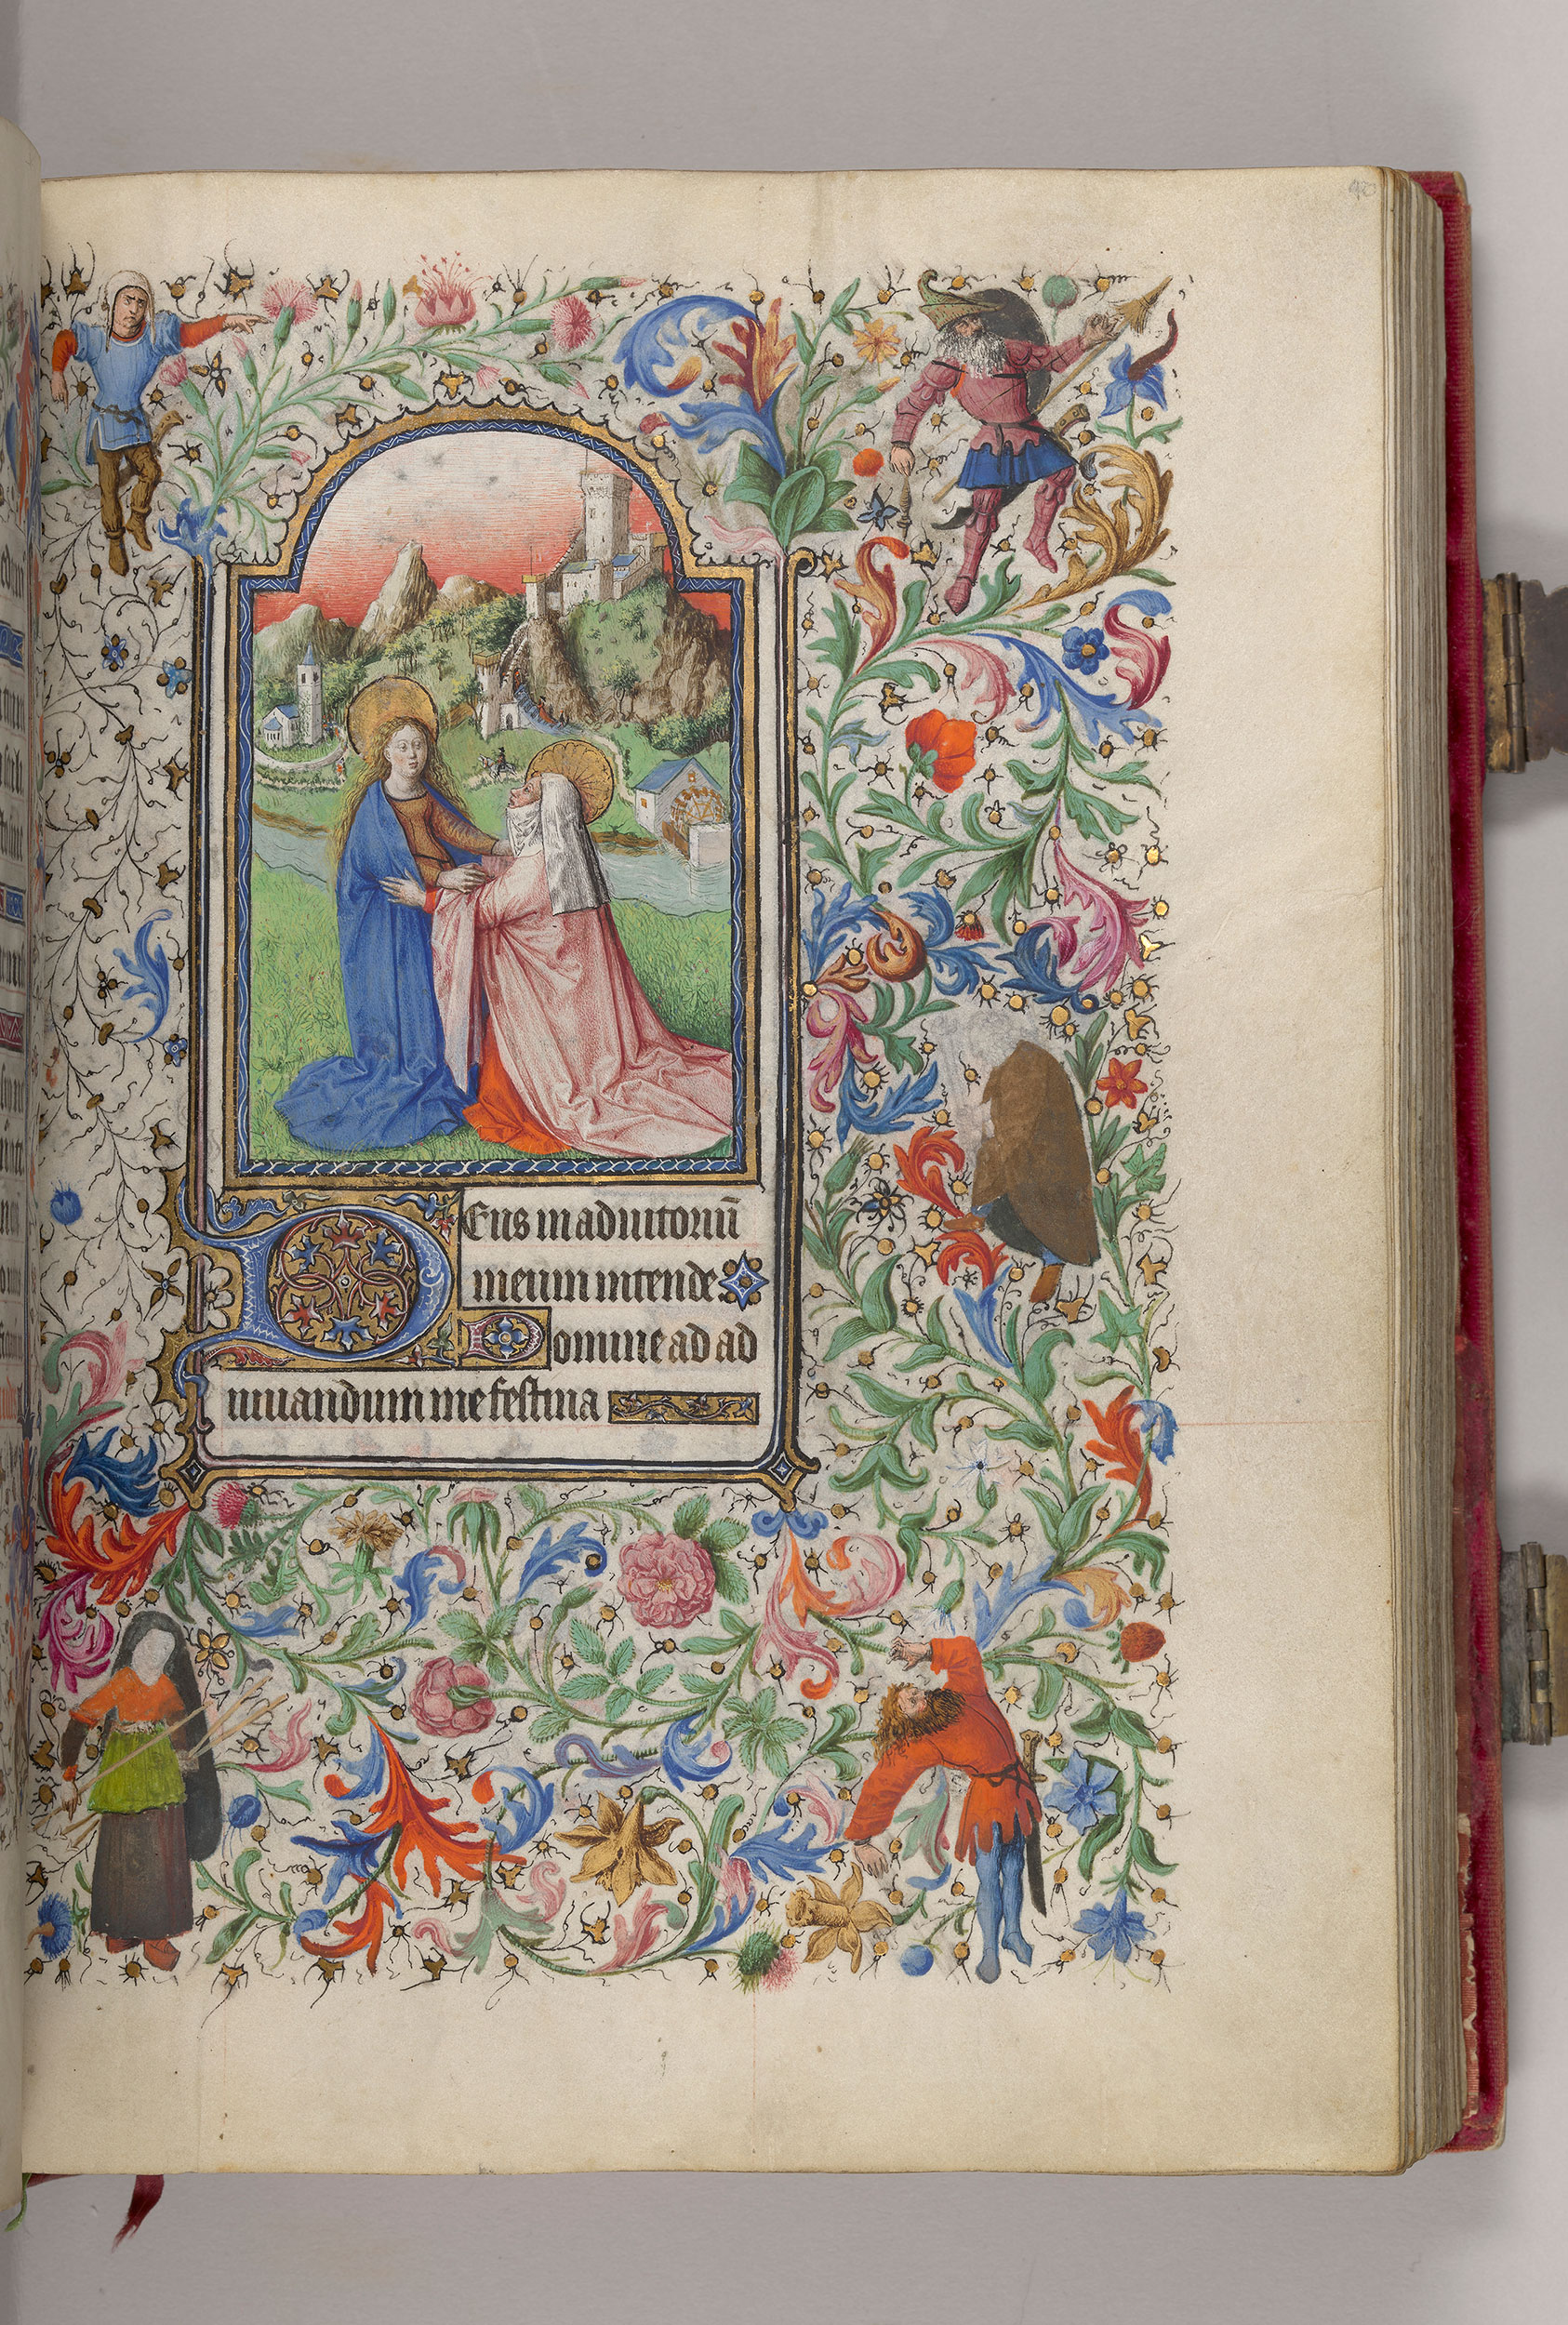 Deus in adiutoriū
meum intende
Domine ad ad
iuuandum me festina